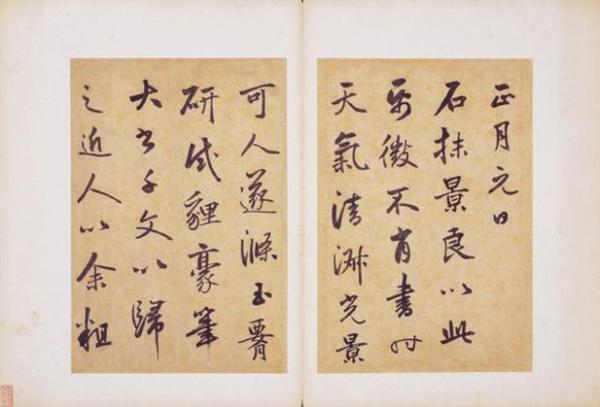 正月元日
石抹景良以此
帋徵不肖書時
天氣清淑光景
可人遂滌玉
研試貍豪筆
大書千文以歸
之近人以余粗